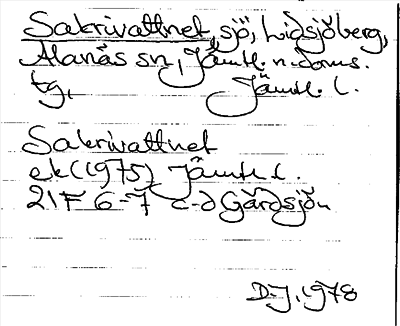 Sakrivattnet, sjö, Lidsjöberg,
Alanäs sn, Jämtl. n. doms.
tg, Jämtl. l.
Sakrivattnet
ek (1975) Jämtl. l.
21F 6-7 c-d Gärdsjön
D-J. 1978